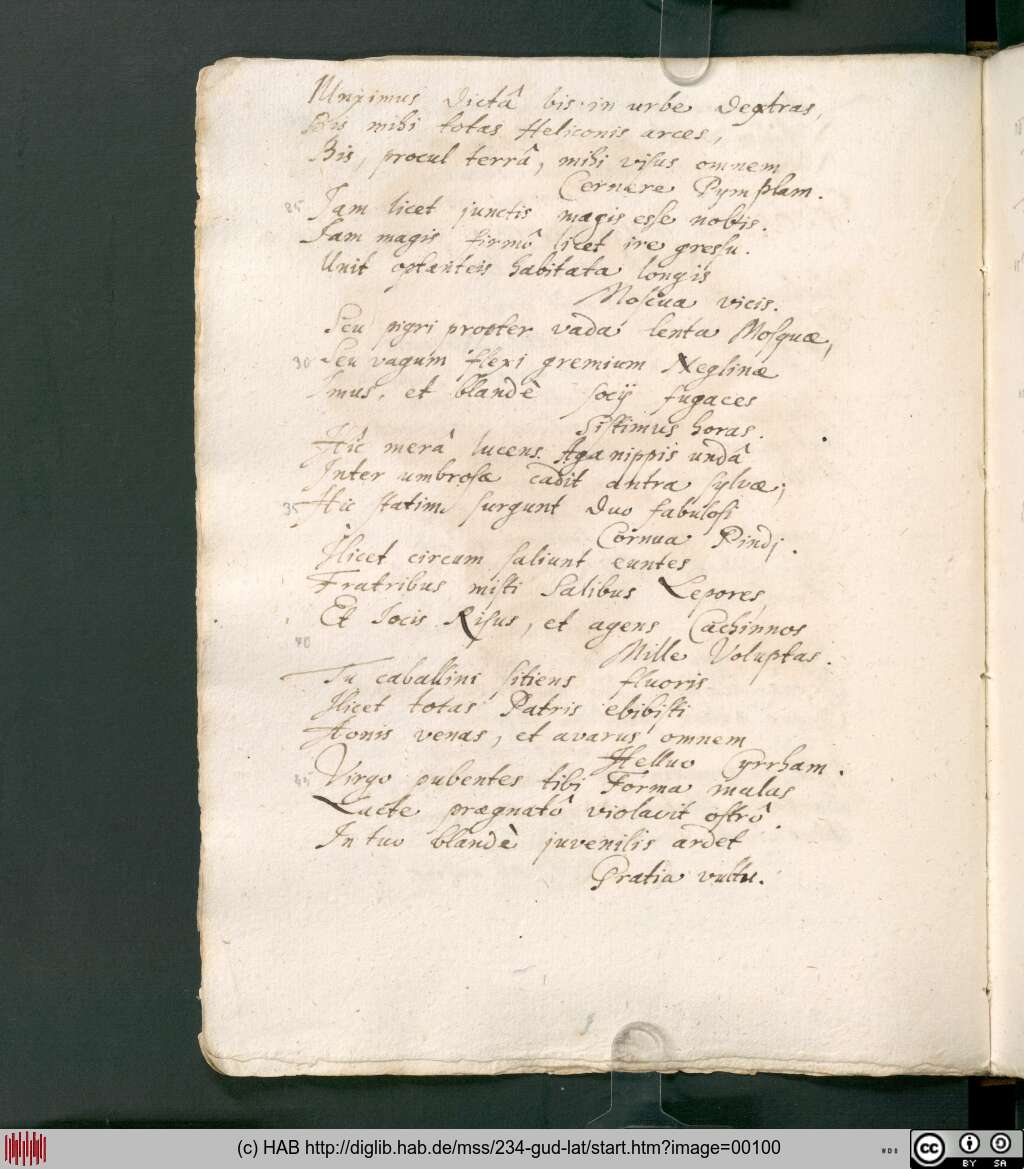 Unximus dictâ bis in urbe dextras,
Bis mihi totas Heliconis arces,
Bis, procul terrâ, mihi visus omnem
Cernere Pymplam.
25 Jam licet junctis magis esse nobis.
Jam magis firmô licet ire gressu.
Unit optanteis habitata longis
Moscua vicis.
Seu pigri propter vada lenta Mosquæ,
30 Seu vagum flexi gremium Neglinæ
Imus, et blandè socij fugaces
Sistimus horas.
Hîc merâ lucens Aganippis undâ
Inter umbrosæ cadit antra sylvæ;
35 Hic statim surgunt duo fabulosi
Cornua Pindj.
Ilicet circum saliunt euntes
Fratribus misti Salibus Lepores,
Et Jocis Risus, et agens Cachinnos
40
Mille Voluptas.
Tu caballini sitiens fluoris
Ilicet totas Patris ebibisti
Aonis venas, et avarus omnem
Helluo Cyrrham.
45 Virgo pubentes tibi Forma malas
Lacte prægnatô violavit ostrô.
In tuo blandè juvenilis ardet
Gratia vultu.
(c) HAB http://diglib.hab.de/mss/234-gud-lat/start.htm?image=00100
WDB
cc
BY SA